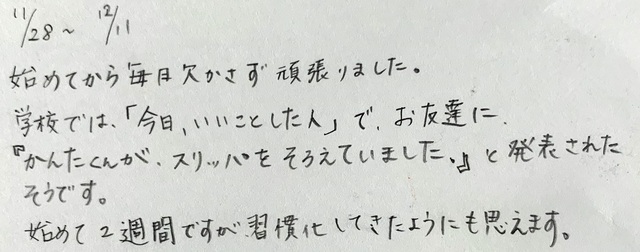 11/28 ~ 12/11
始めてから毎日欠かさず頑張りました。
学校では、「今日、いいことした人」で、お友達に、
『かんたくんが、スリッパをそろえていました。』と発表された
そうです。
始めて2週間ですが習慣化してきたようにも思えます。